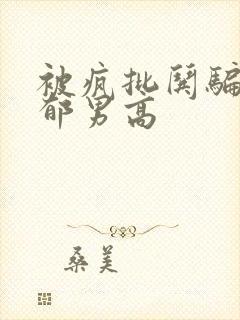 被疯批哭骗
郁男高
桑美